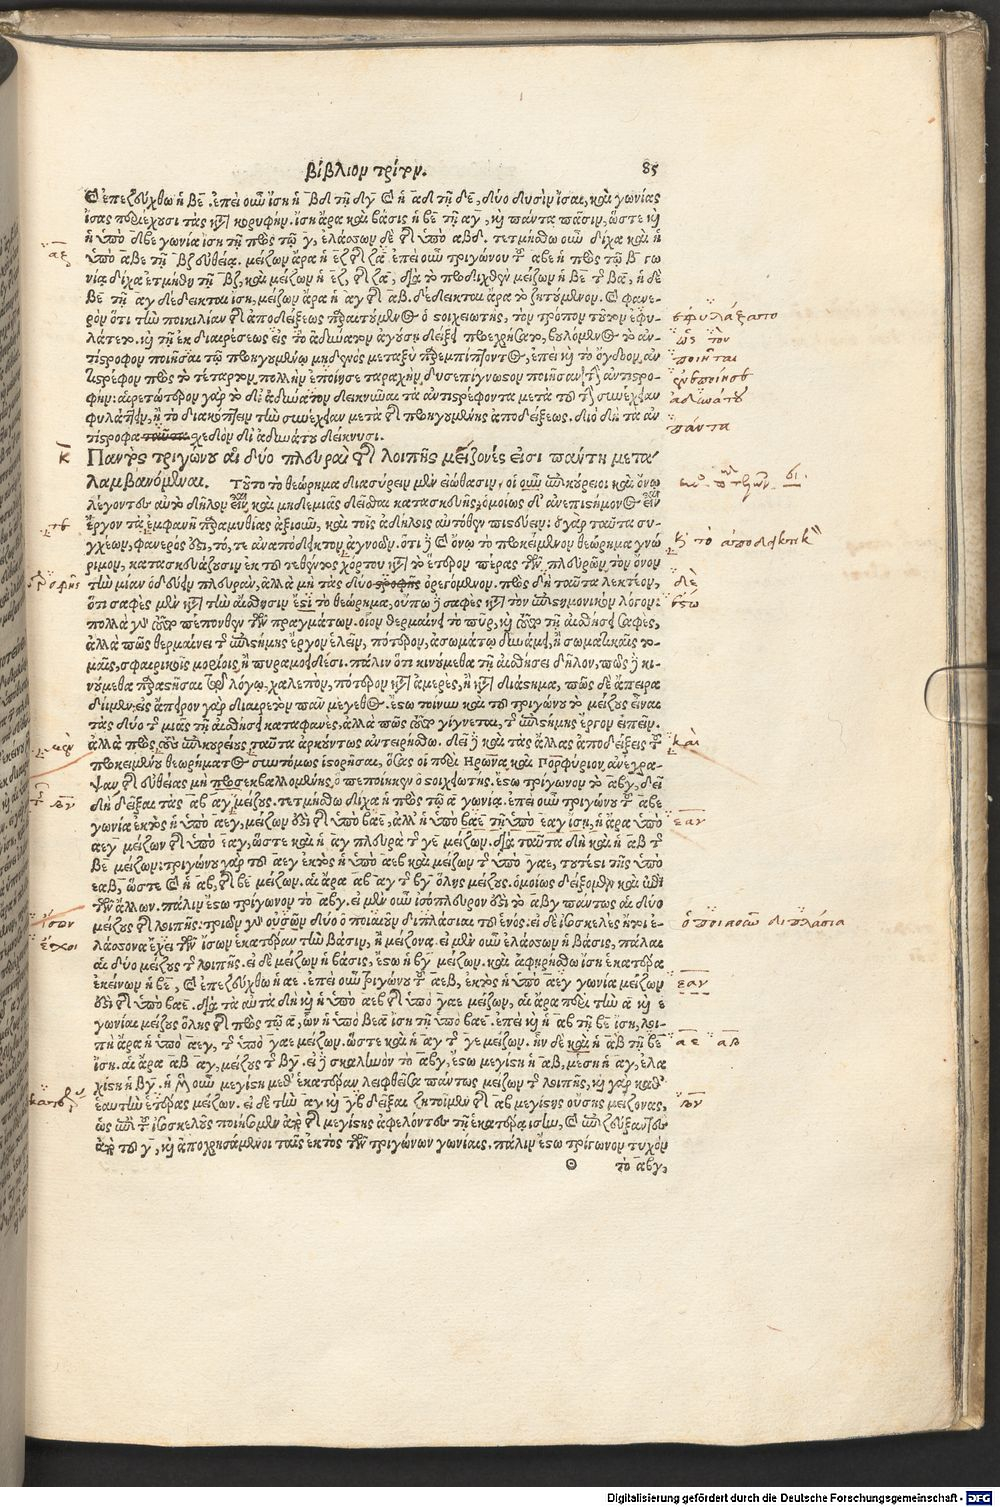 βίβλιον τρίτον. 85
ἐπεζεύχθω ἡ βε. ἐπεὶ οὖν ἴση ἡ βδ τῇ δγ καὶ ἡ αδ τῇ δε, δύο δυσὶν ἴσαι, καὶ γωνίας
ἴσας περιέχουσι τὰς κατὰ κορυφήν. ἴση ἄρα καὶ βάσις ἡ βε τῇ αγ, καὶ πάντα πᾶσιν, ὥστε καὶ
ἡ ὑπὸ δβε γωνία ἴση τῇ πρὸς τῷ γ, ἐλάσσων δὲ τῆς ὑπὸ αβδ. τετμήσθω οὖν δίχα καὶ ἡ
ὑπὸ αβε τῇ βζ εὐθείᾳ. μείζων ἄρα ἡ εζ τῆς ζα. ἐπεὶ οὖν τριγώνου τοῦ αβε ἡ πρὸς τῷ β γω
νία δίχα ἐτμήθη τῇ βζ, καὶ μείζων ἡ εζ, τῆς ζα, διὰ τὸ προδειχθὲν μείζων ἡ βε τῆς βα, ἡ δὲ
βε τῇ αγ δέδεικται ἴση, μείζων ἄρα ἡ αγ τῆς αβ. δέδεικται ἄρα τὸ ζητούμενον. καὶ φανε-
ρὸν ὅτι τὴν ποικιλίαν τῆς ἀποδείξεως παραιτούμενος ὁ στοιχειωτής, τὸν τρόπον τοῦτον ἐφυ-
λάτετο. καὶ τῇ ἐκ διαιρέσεως εἰς τὸ ἀδύνατον ἀγούσῃ δείξει προσχρῆται, βουλόμενος τὸ ἀν-
τίστροφον ποιῆσαι τῷ προηγουμένῳ μηδενὸς μεταξὺ παρεμπίπτοντος, ἐπεὶ καὶ τὸ ὄγδοον ἀν
τιστρέφον πρὸς τὸ τέταρτον πολλὴν ἐποίησε ταραχὴν, δυσεπίγνωστον ποιῆσαν τὴν ἀντιστρο-
φήν. αἱρετώτερον γὰρ τὸ δι' ἀδυνάτου δεικνῦναι τὰ ἀντιστρέφοντα μετὰ τοῦ τὴν συνέχειαν
φυλάττειν, ἢ τὸ διακόπτειν τὴν συνέχειαν μετὰ τῆς προηγουμένης ἀποδείξεως. διὸ δὴ τὰ ἀν
τίστροφα ταῦτα χεδὸν δι' ἀδυνάτου δείκνυσι.
κ Παντὸς τριγώνου αἱ δύο πλευραὶ τῆς λοιπῆς μείζονές εἰσι πάντη μετα-
λαμβανόμεναι. Τοῦτο τὸ θεώρημα διασύρειν μὲν εἰώθασιν, οἱ οὖν ἐπικούρειοι καὶ ὄνῳ
λέγοντες αὐτὸ δῆλον εἶναι καὶ μηδεμιᾶς δεῖσθαι κατασκευῆς, ὁμοίως δι' ἀνεπιστήμονος εἶναι
ἔργον τὰ ἐμφανῆ παραμυθίας ἀξιοῦν, καὶ τοῖς ἀδήλοις αὐτόθεν πιστεύειν: ὁ γὰρ ταῦτα συ-
γχέων, φανερός ἐστι, τό, τε ἀναπόδεικτον ἀγνοῶν. ὅτι δὲ καὶ ὄνῳ τὸ προκείμενον θεώρημα γνώ
ριμον, κατασκευάζουσιν ἐκ τοῦ τεθέντος χόρτου κατὰ τὸ ἕτερον πέρας τῶν πλευρῶν τὸν ὄνον
τὴν μίαν ὁδεύειν πλευράν, ἀλλὰ μὴ τὰς δύο τροφῆς ὀρεγόμενον. πρὸς δὴ ταῦτα λεκτέον,
ὅτι σαφὲς μὲν κατὰ τὴν αἴσθησιν ἐστὶ τὸ θεώρημα, οὔπω δὲ σαφὲς κατὰ τὸν ἐπιστημονικὸν λόγον:
πολλὰ γὰρ τοῦτο πέπονθεν τῶν πραγμάτων. οἷον θερμαίνει τὸ πῦρ, καὶ τοῦτο τῇ αἰσθήσει σαφές,
ἀλλὰ πῶς θερμαίνει τῆς ἐπιστήμης ἔργον ἑλεῖν, πότερον, ἀσωμάτῳ δυνάμει, ἢ σωματικαῖς το-
μαῖς, σφαιρικοῖς μορίοις, ἢ πυραμοειδέσι. πάλιν ὅτι κινούμεθα τῇ αἰσθήσει δῆλον, πῶς δὲ κι-
νούμεθα παραστῆσαι τῷ λόγῳ, χαλεπόν, πότερον κατὰ ἀμερὲς, ἢ κατὰ διάστημα, πῶς δὲ ἄπειρα
διΐμεν; εἰς ἄπειρον γὰρ διαιρετὸν πᾶν μέγεθος. ἔστω τοίνυν καὶ τοῦ τριγώνου τὸ μείζους εἶναι
τὰς δύο τῆς μιᾶς τῇ αἰσθήσει καταφανὲς, ἀλλὰ πῶς τοῦτο γίγνεται, τῆς ἐπιστήμης ἔργον εἰπεῖν.
ἀλλὰ πρὸς τοὺς ἐπικουρείους ταῦτα ἀρκούντως ἀντειρήσθω. δεῖ δὲ καὶ τὰς ἄλλας ἀποδείξεις τοῦ
προκειμένου θεωρήματος συντόμως ἱστορῆσαι, ὅσας οἱ περὶ Ἥρωνα καὶ Πορφύριον ἀνέγρα-
ψαν τῆς εὐθείας μὴ προσεκβαλλομένης, ὃ πεποίηκεν ὁ στοιχειωτής. ἔστω τρίγωνον τὸ αβγ, δεῖ
δὴ δεῖξαι τὰς αβ αγ μείζους. τετμήσθω δίχα ἡ πρὸς τῷ α γωνία. ἐπεὶ οὖν τριγώνου τοῦ αβε
γωνία ἐκτὸς ἡ ὑπὸ αεγ, μείζων ἐστὶ τῆς ὑπὸ βαε, ἀλλ' ἡ ὑπὸ βαε τῇ ὑπὸ εαγ ἴση, ἡ ἄρα ὑπὸ
αεγ μείζων τῆς ὑπὸ εαγ, ὥστε καὶ ἡ αγ πλευρὰ τῆς γε μείζων. διὰ ταῦτα δὴ καὶ ἡ αβ τῆς
βε μείζων: τριγώνου γὰρ τοῦ αεγ ἐκτὸς ἡ ὑπὸ αεβ καὶ μείζων τῆς ὑπὸ γαε, τουτέστι τῆς ὑπὸ
εαβ, ὥστε καὶ ἡ αβ, τῆς βε μείζων. αἱ ἄρα αβ αγ τῆς βγ ὅλης μείζους. ὁμοίως δείξομεν καὶ ἐπὶ
τῶν ἄλλων. πάλιν ἔστω τρίγωνον τὸ αβγ. εἰ μὲν οὖν ἰσόπλευρόν ἐστι τὸ αβγ πάντως αἱ δύο
μείζους τῆς λοιπῆς: τριῶν γὰρ οὐσῶν δύο ὁποιαιοῦν διπλάσιαι τοῦ ἑνός. εἰ δὲ ἰσοσκελὲς ἤτοι ἐ-
λάσσονα ἔχει τῶν ἴσων ἑκατέραν τὴν βάσιν, ἢ μείζονα. εἰ μὲν οὖν ἐλάσσων ἡ βάσις, πάλαι
αἱ δύο μείζους τῆς λοιπῆς. εἰ δὲ μείζων ἡ βάσις, ἔστω ἡ βγ μείζων. καὶ ἀφῃρήσθω ἴση ἑκατέρᾳ
ἐκείνων ἡ βε, καὶ ἐπεζεύχθω ἡ αε. ἐπεὶ οὖν τριγώνου τοῦ αεβ, ἐκτὸς ἡ ὑπὸ αεγ γωνία μείζων
ἐστὶ τῆς ὑπὸ βαε. διὰ τὰ αὐτὰ δὴ καὶ ἡ ὑπὸ αεβ τῆς ὑπὸ γαε μείζων, αἱ ἄρα περὶ τὴν α καὶ ε
γωνίαι μείζους ὅλης τῆς πρὸς τῷ α, ὧν ἡ ὑπὸ βεα ἴση τῇ ὑπὸ βαε. ἐπεὶ καὶ ἡ αβ τῇ βε ἴση, λοι-
πὴ ἄρα ἡ ὑπὸ αεγ, τῆς ὑπὸ γαε μείζων. ὥστε καὶ ἡ αγ τῆς γε μείζων. ἦν δὲ καὶ ἡ αβ τῇ βε
ἴση. αἱ ἄρα αβ αγ, μείζους τῆς βγ. εἰ δὲ σκαληνὸν τὸ αβγ, ἔστω μεγίστη ἡ αβ, μέση ἡ αγ, ἐλα
χίστη ἡ βγ. ἡ μὲν οὖν μεγίστη μεθ' ἑκατέραν λειφθεῖσα πάντως μείζων τῆς λοιπῆς, καὶ γὰρ καθ'
ἑαυτὴν ἑτέρας μείζων. εἰ δὲ τὴν αγ καὶ γβ δεῖξαι ζητοῖμεν τῆς αβ μεγίστης οὔσης μείζονας,
ὡς ἐπὶ τοῦ ἰσοσκελοῦς ποιήσομεν ἀπὸ τῆς μεγίστης ἀφελόντες τῇ ἑκατέρᾳ ἴσην, καὶ ἐπιζεύξαντες
ἀπὸ τοῦ γ, καὶ ἀποχρησάμενοι ταῖς ἐκτὸς τῶν τριγώνων γωνίαις. πάλιν ἔστω τρίγωνον τυχὸν
Θ τὸ αβγ,
αζ
ἐφυλάξατο
ὡς τὸν
ποιῆται
ἐνεποίησε
ἀδυνάτου
πάντα
τὸ ἀποδεικτικ
τροφῆς
δὲ
ἔστω
καὶ
εαγ
ὁποιαιοῦν διπλάσια
ἴσων
ἔχοι
εαγ
αε αβ
Digitalisierung gefördert durch die Deutsche Forschungsgemeinschaft - DFG